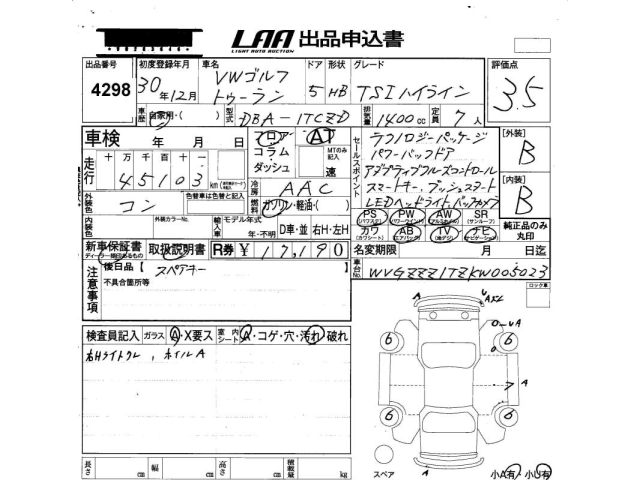 LAA 出品申込書
LIGHT AUTO AUCTION
出品番号 初度登録年月 車名 ドア 形状 グレード 評価点
4298 30年12月 VWゴルフ トゥーラン 5 HB TSIハイライン 3.5
車歴 自家用・( ) 型式 DBA-1TCZD 排気量 1400cc 定員 7人
車検 年 月 日 フロア AT セールスポイント テクノロジーパッケージ 【外装】
コラム・ダッシュ MTのみ記入 速 パワーバックドア B
走行 十万千百十 45103 km アダプティブクルーズコントロール
冷房 AAC スマートキー、プッシュスタート 【内装】
外装色 コン 色替車は色替と記入 燃料 ガソリン・軽油・( ) LEDヘッドライト、バックカメラ B
PS (パワステ) PW (パワーウインド) AW (アルミホイル) SR (サンルーフ) 純正品のみ丸印
内装色 外装カラーNo. 輸入車 モデル年式 年・不明 D車・並 右H・左H カワ (カワシート) AB (エアバック) TV (地デジ) ナビ (ナビゲーション)
新車保証書 取扱説明書 R券 ¥17,190 名変期限 月 日迄
注意事項 後日品【 スペアキー 車台No. WVGZZZ1TZKW005023
不具合箇所等
ロック車
検査員記入 ガラス A・X要ス 室内シート A・コゲ・穴・汚れ・破れ
右Hライトクレ, ホイルA
A
U
A
6
6
6
6
7 A
A
スペア
小A有・小U有
長さ cm 幅 cm 高さ cm 積載量 kg